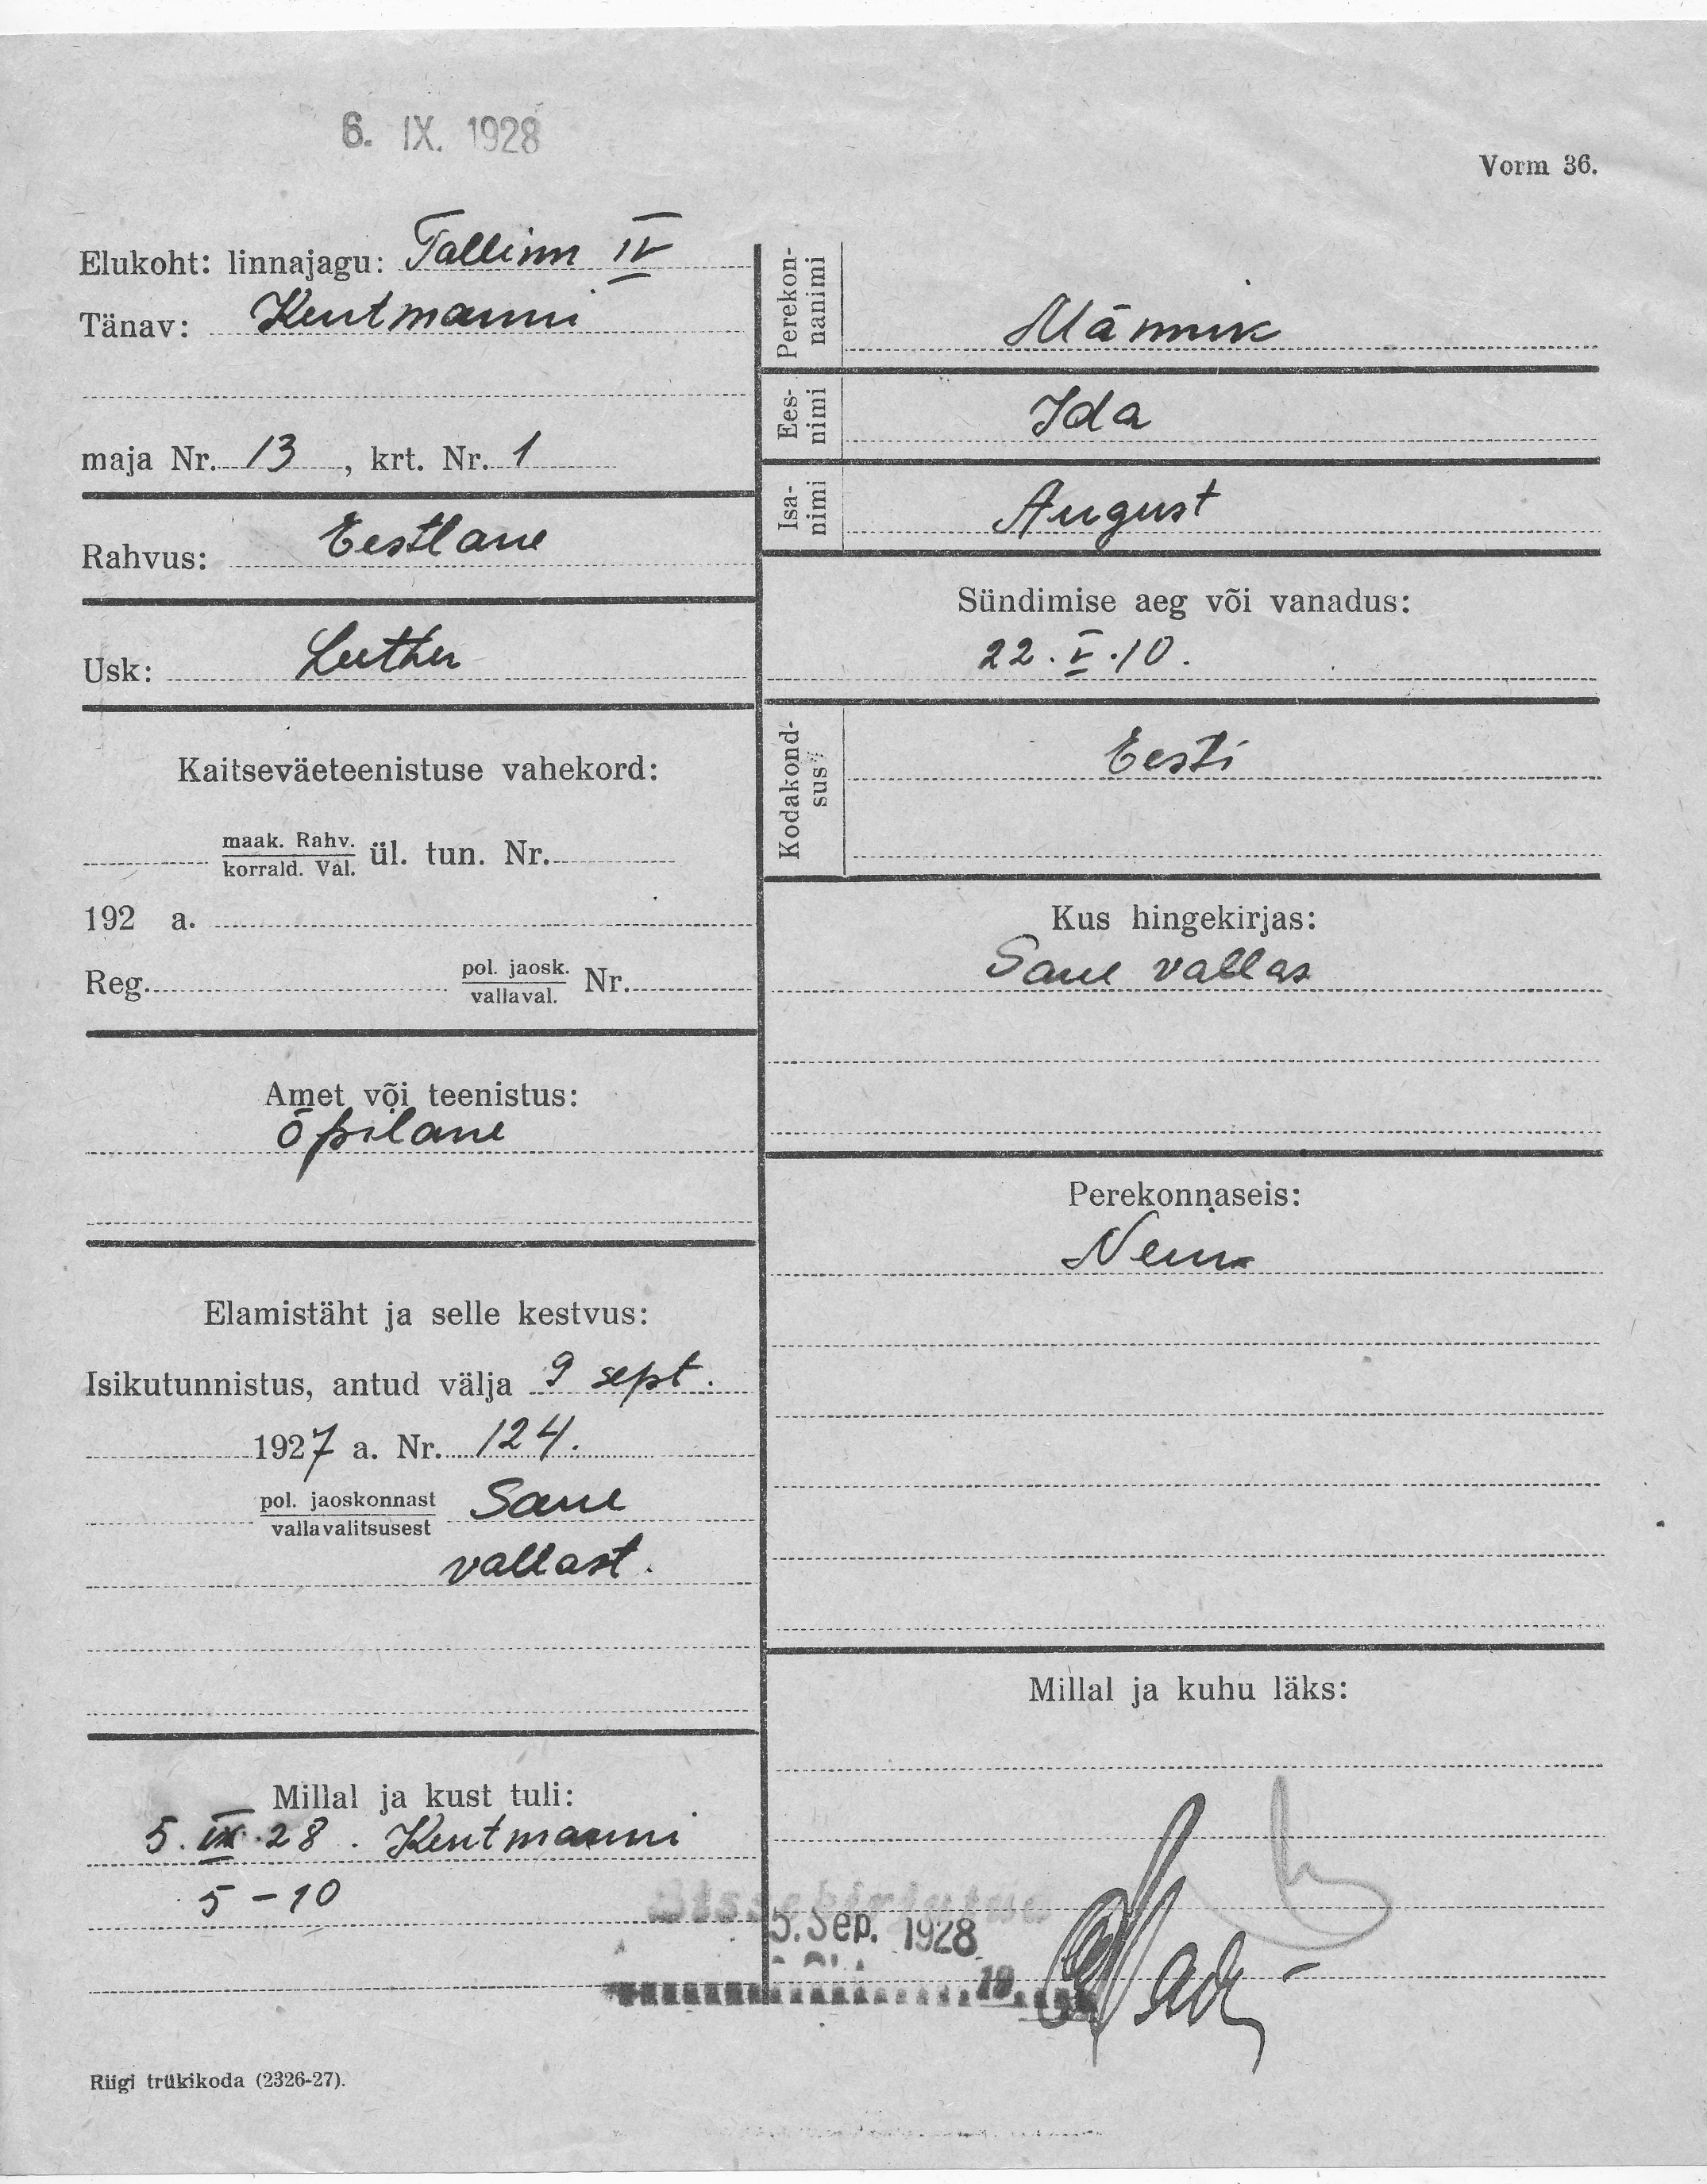 6. IX. 1928
Vorm 36.
Elukoht: linnajagu: Tallinn IV
Tänav: Kentmanni
maja Nr. 13, krt. Nr. 1
Rahvus: Eestlane
Usk: Luther
Kaitseväeteenistuse vahekord:
maak. Rahv.
korrald. Val. ül. tun. Nr.
192 a.
Reg. pol. jaosk. Nr.
vallaval.
Amet või teenistus:
õpilane
Elamistäht ja selle kestvus:
Isikutunnistus, antud välja 9 sept.
1927 a. Nr. 124.
pol. jaoskonnast Saue
vallavalitsusest
vallast.
Millal ja kust tuli:
5. IX. 28. Kentmanni
5-10
Perekon-
nanimi
Männik
Ees-
nimi
Ida
Isa-
nimi
August
Sündimise aeg või vanadus:
22. V. 10.
Kodakond-
sus
Eesti
Kus hingekirjas:
Saue vallas
Perekonnaseis:
Millal ja kuhu läks:
Sissekirjutud
5. Sep. 1928
19
Riigi trükikoda (2326-27).